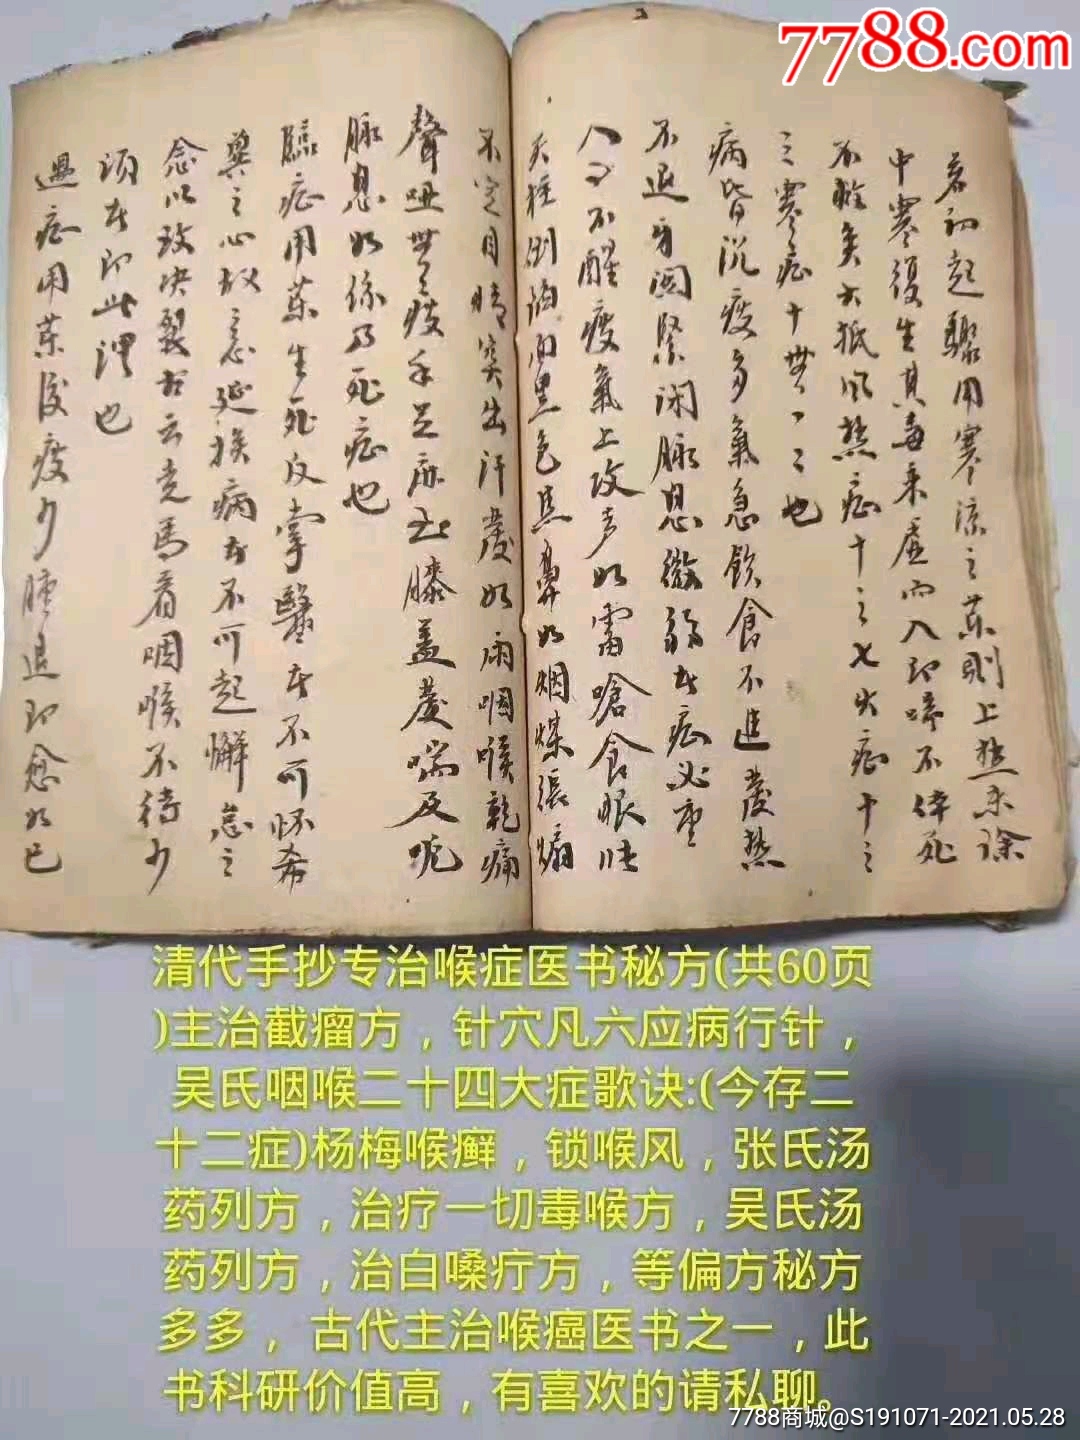 7788.com
若初起驟用寒涼之藥則上熱未除
中寒復生其毒乘虛而入即啼不伴死
不驗矣大抵風熱症十之七火症十之
三寒症十無一二也
病皆沉痰多氣急飲食不進發熱
不退牙関緊閉脉息微弱者症必重
人不醒痰氣上攻声如雷嗆食眼
天柱倒面黑色焦鼻如烟煤張
不定目睛突出汗發如雨咽喉乾痛
聲啞無痰手足麻膝蓋發喘及
脉息如係乃死症也
臨症用藥生死反掌醫者不可怀希
異之心放之意延挨病者不可起懈怠之
念以致决裂古云走馬看咽喉不待少
頃者即此謂也
過症用藥後痰少腫退即愈如已
清代手抄专治喉症医书秘方(共60页
)主治截瘤方，针穴凡六应病行针，
吴氏咽喉二十四大症歌诀:(今存二
十二症)杨梅喉癣，锁喉风，张氏汤
药列方，治疗一切毒喉方，吴氏汤
药列方，治白嗓疔方，等偏方秘方
多多， 古代主治喉癌医书之一，此
书科研价值高，有喜欢的请私聊。
7788商城@S191071-2021.05.28